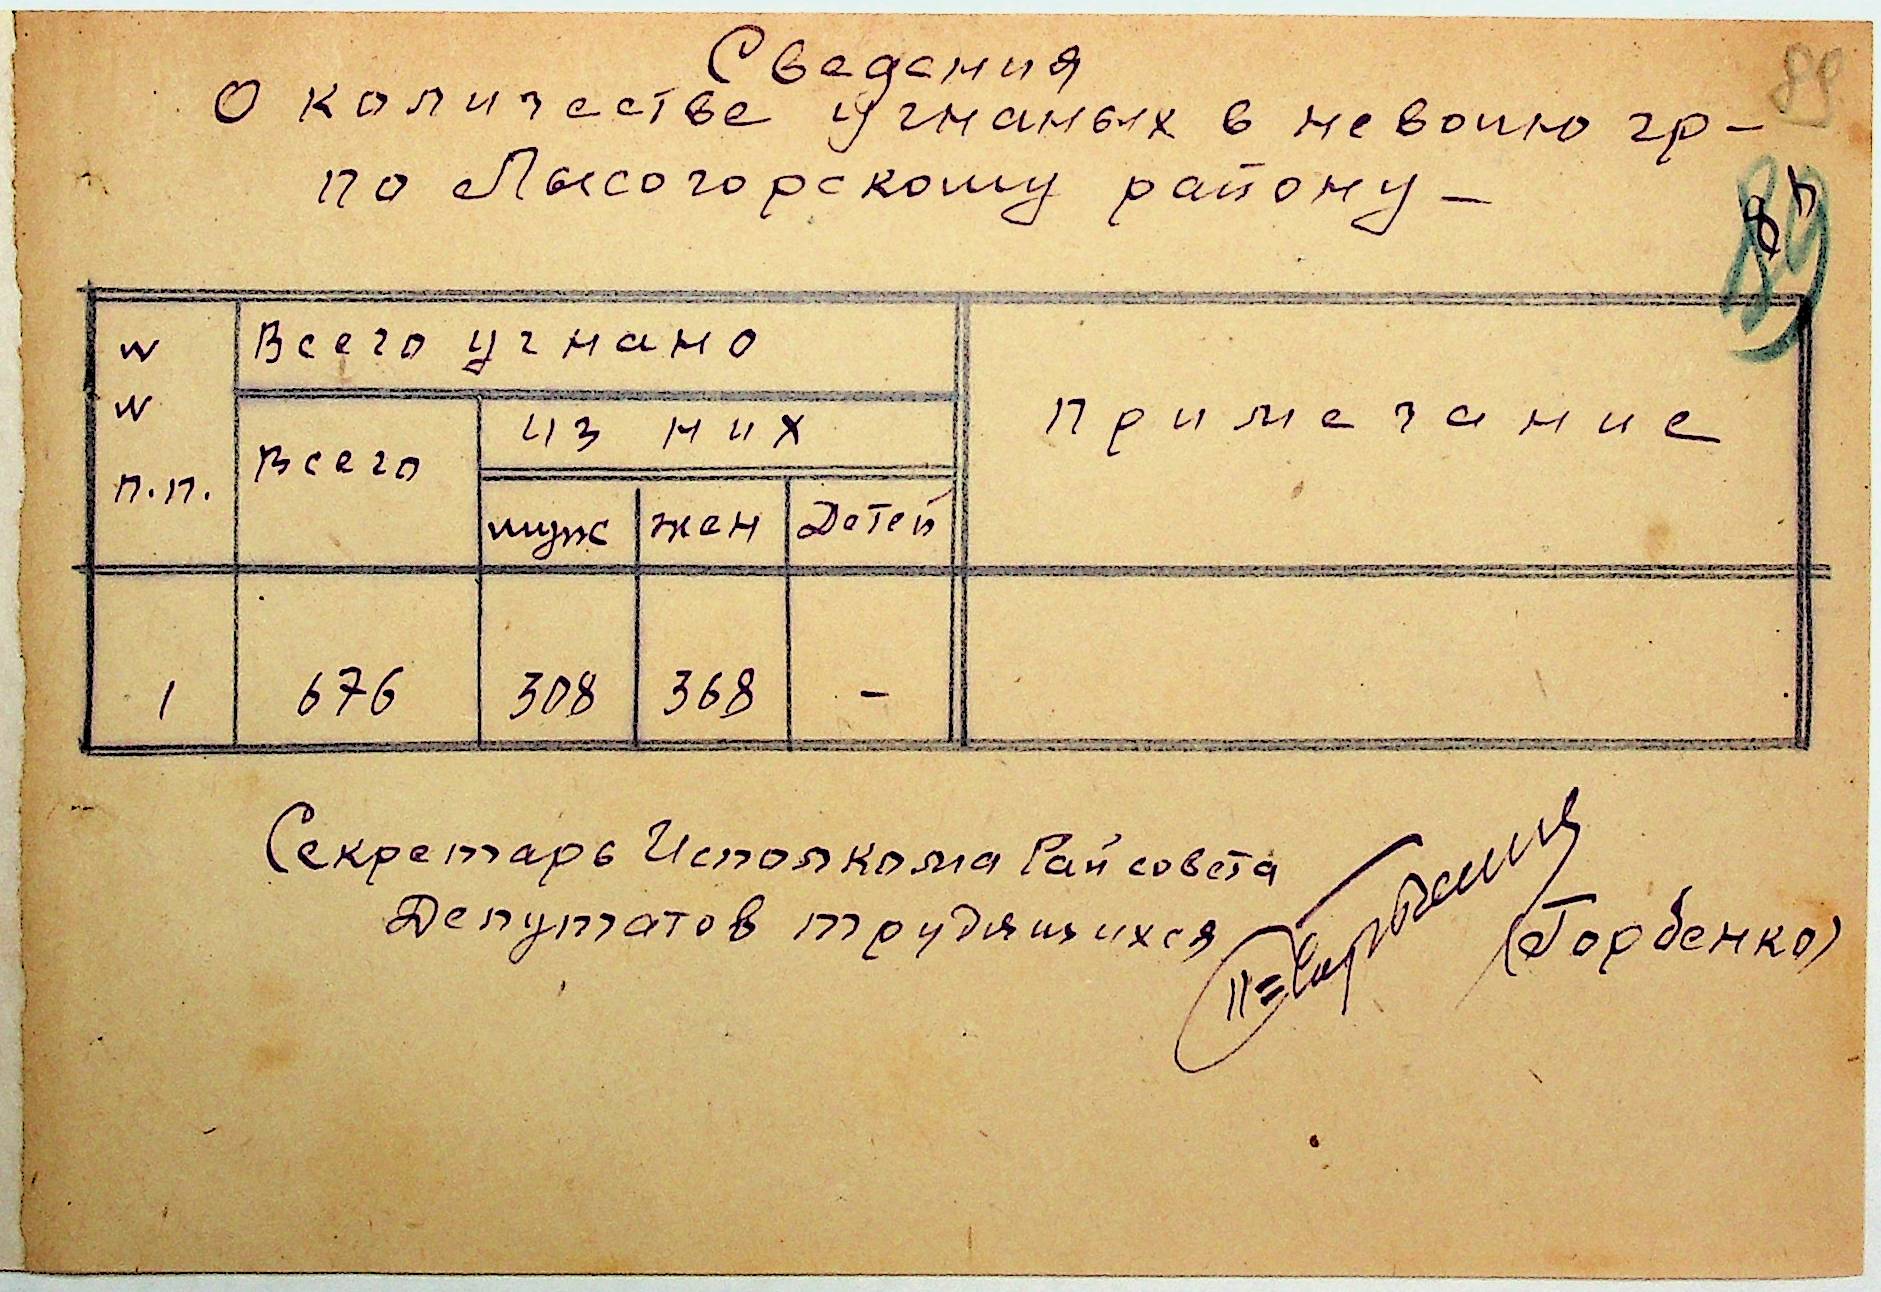 Сведения
89
О количестве угнаных в неволю гр-
по Лысогорскому району-
89
N
N
п.п.
Всего угнано
Примечание
Всего
из них
муж
жен
Детей
1
676
308
368
-
Секретарь Исполкома Райсовета
Депутатов трудящихся
(Горбенко)